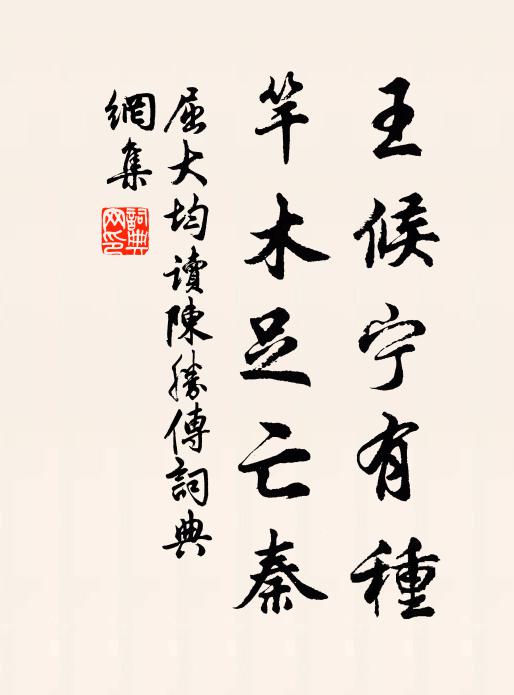 王候宁有種
竿木足亡秦
屈大均讀陳勝傳詞典
網集
詞典
网印